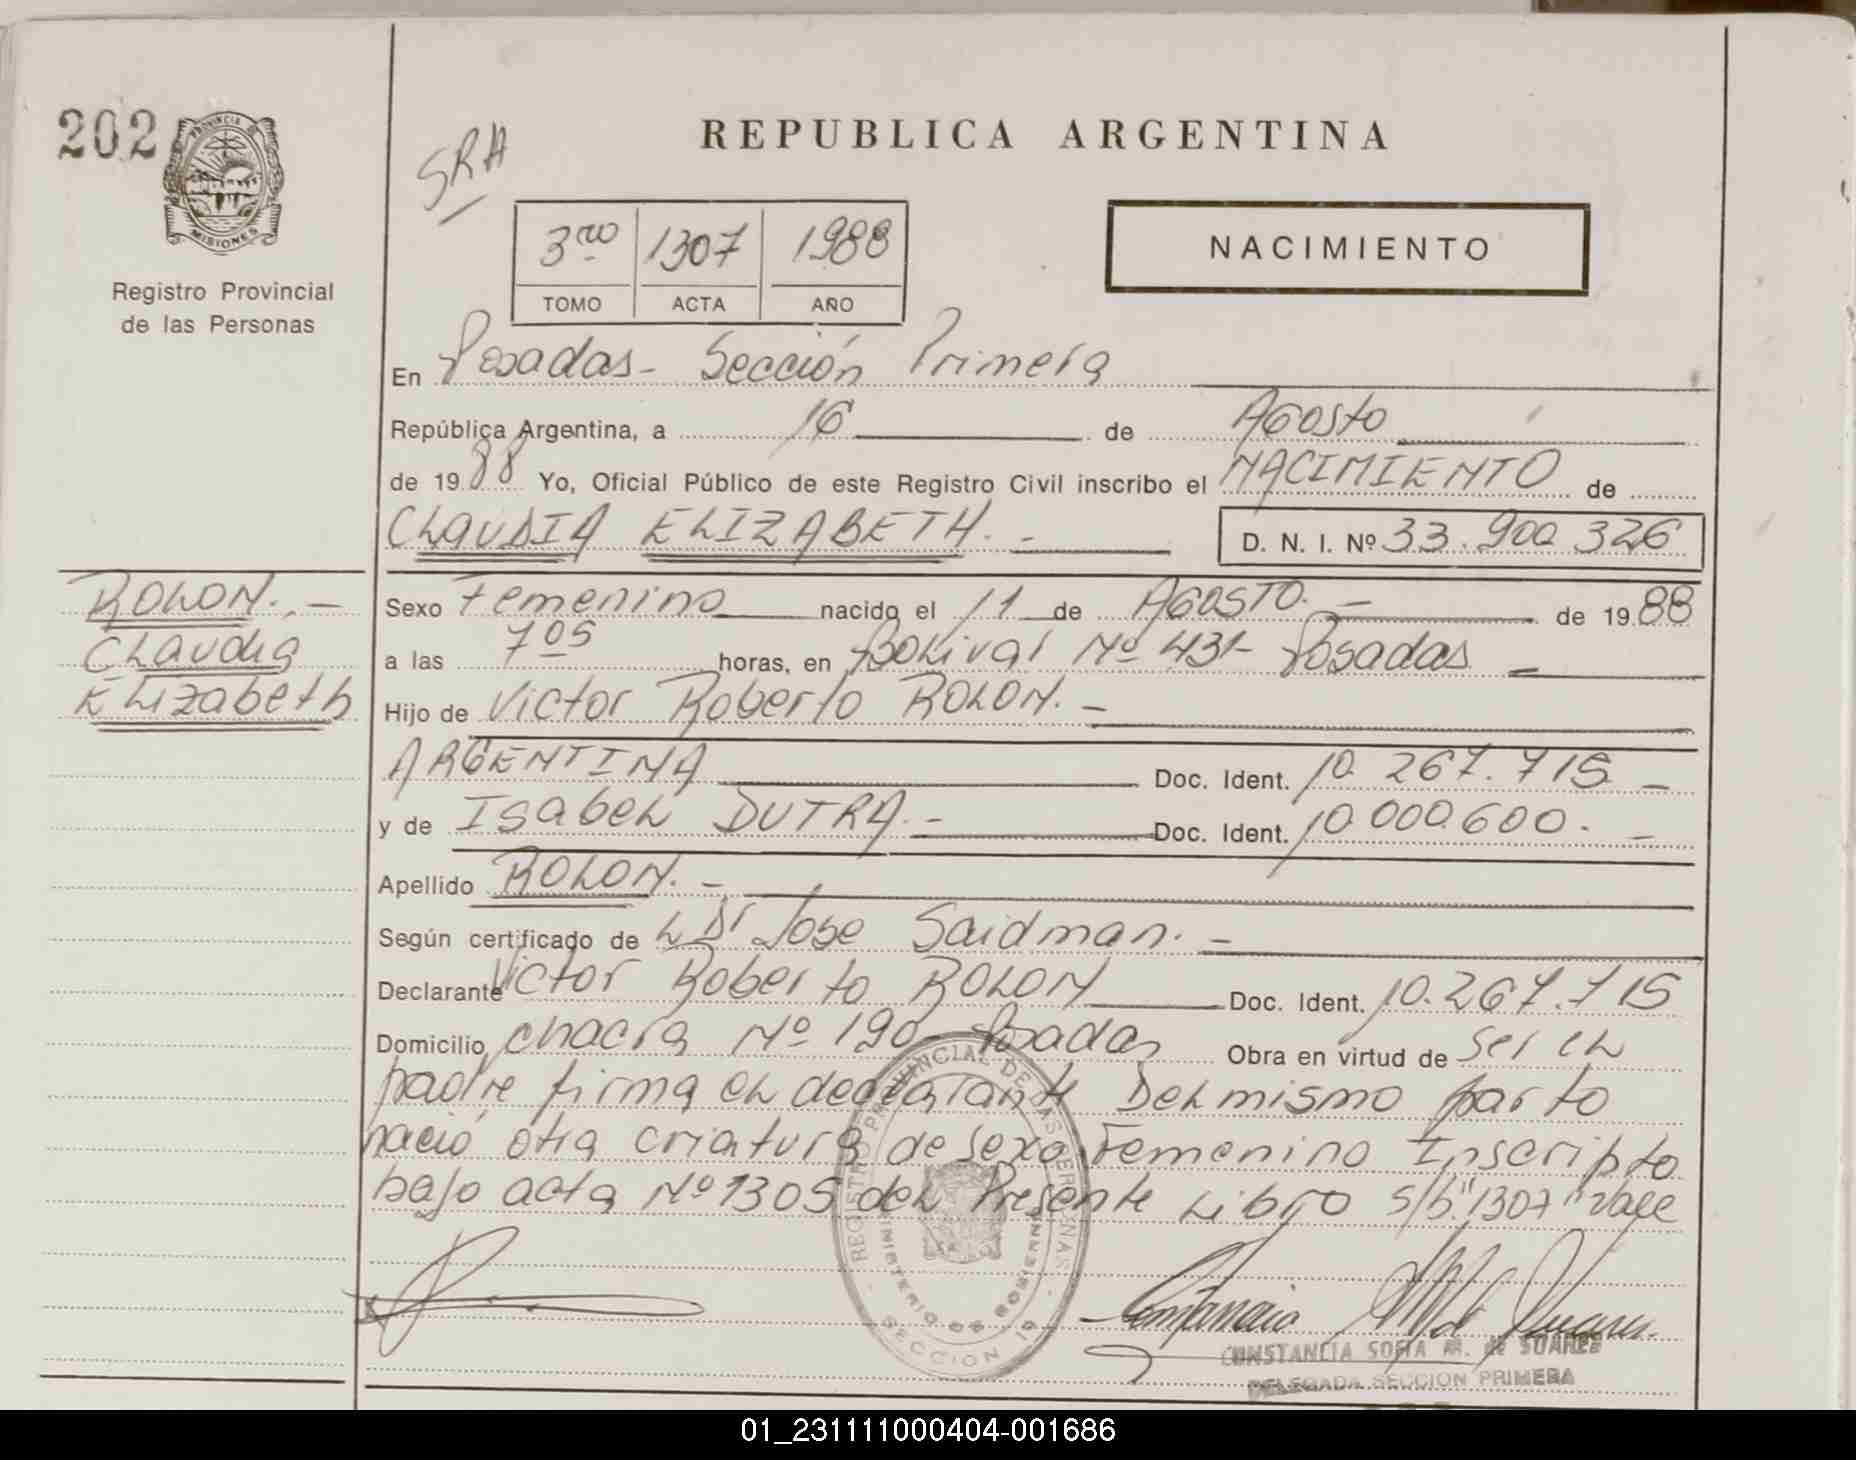 202
PROVINCIA DE
MISIONES
Registro Provincial
de las Personas
SRA
REPUBLICA ARGENTINA
3ro 1307 1988
TOMO ACTA AÑO
NACIMIENTO
En Posadas - Sección Primera
República Argentina, a 16 de Agosto
de 1988 Yo, Oficial Público de este Registro Civil inscribo el NACIMIENTO de
CLAUDIA ELIZABETH. - D. N. I. Nº 33.900 326
ROLON. -
Claudia
Elizabeth
Sexo Femenino nacido el 11 de AGOSTO. - de 1988
a las 705 horas, en Bolivar Nº 431- Posadas -
Hijo de Victor Roberto ROLON. -
ARGENTINA Doc. Ident. 10.267.715 -
y de Isabel DUTRA. - Doc. Ident. 10.000.600. -
Apellido ROLON. -
Según certificado de L Dr Jose Saidman. -
Declarante Victor Roberto ROLON Doc. Ident. 10.267.715
Domicilio chacra Nº 190 Posadas Obra en virtud de ser el
padre firma el declarante Del mismo parto
nació otra criatura de sexo Femenino Inscripto
bajo acta Nº 1305 del Presente Libro S/b "1307" vale
REGISTRO PROVINCIAL DE LAS PERSONAS
MINISTERIO DE GOBIERNO
SECCION 1º
CONSTANCIA SOFIA M. de SUAREZ
DELEGADA SECCION PRIMERA
01_231111000404-001686